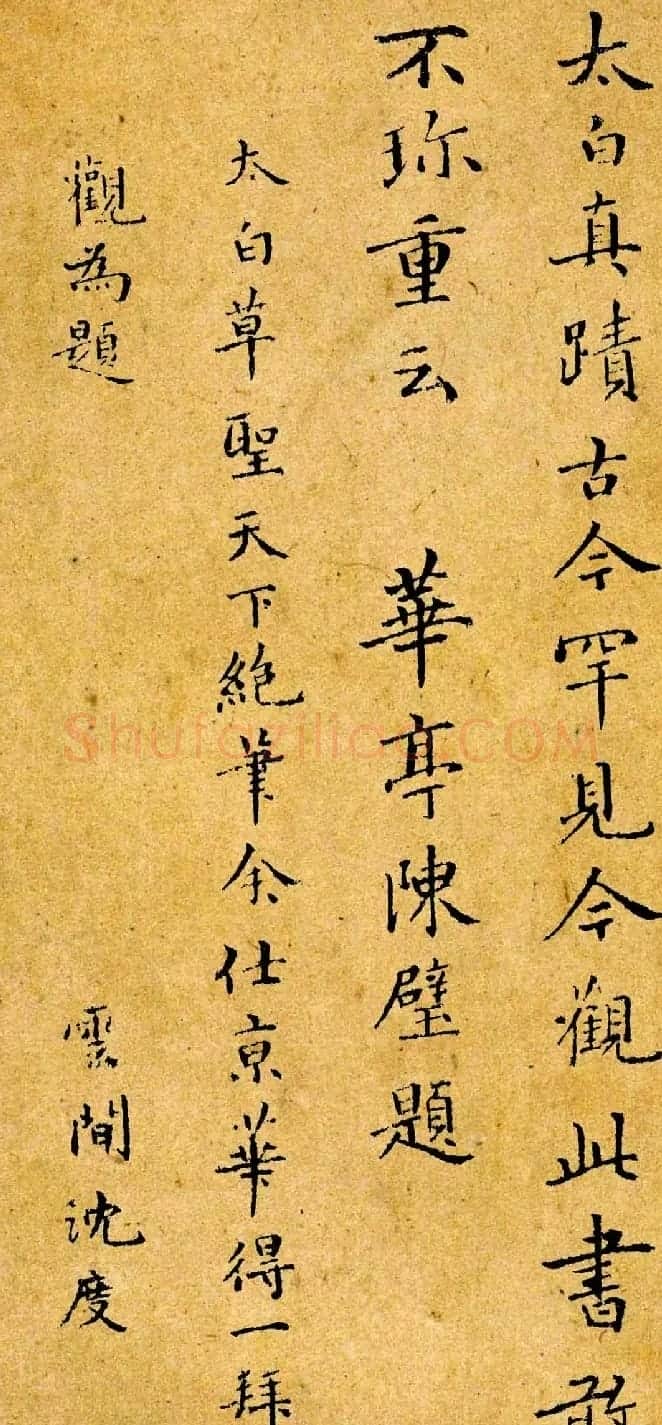 太白真蹟古今罕見今觀此書敢
不珎重云 華亭陳璧題
太白草聖天下絕筆余仕京華得一拜
觀為題 雲間沈度